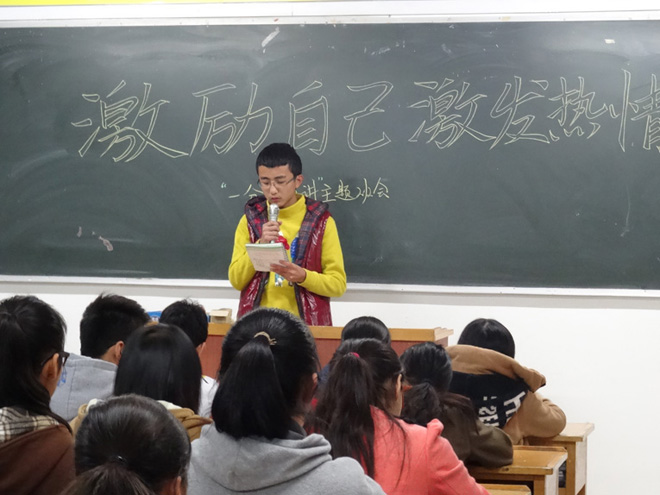 激励自己激发热情
"一 讲"主题班会